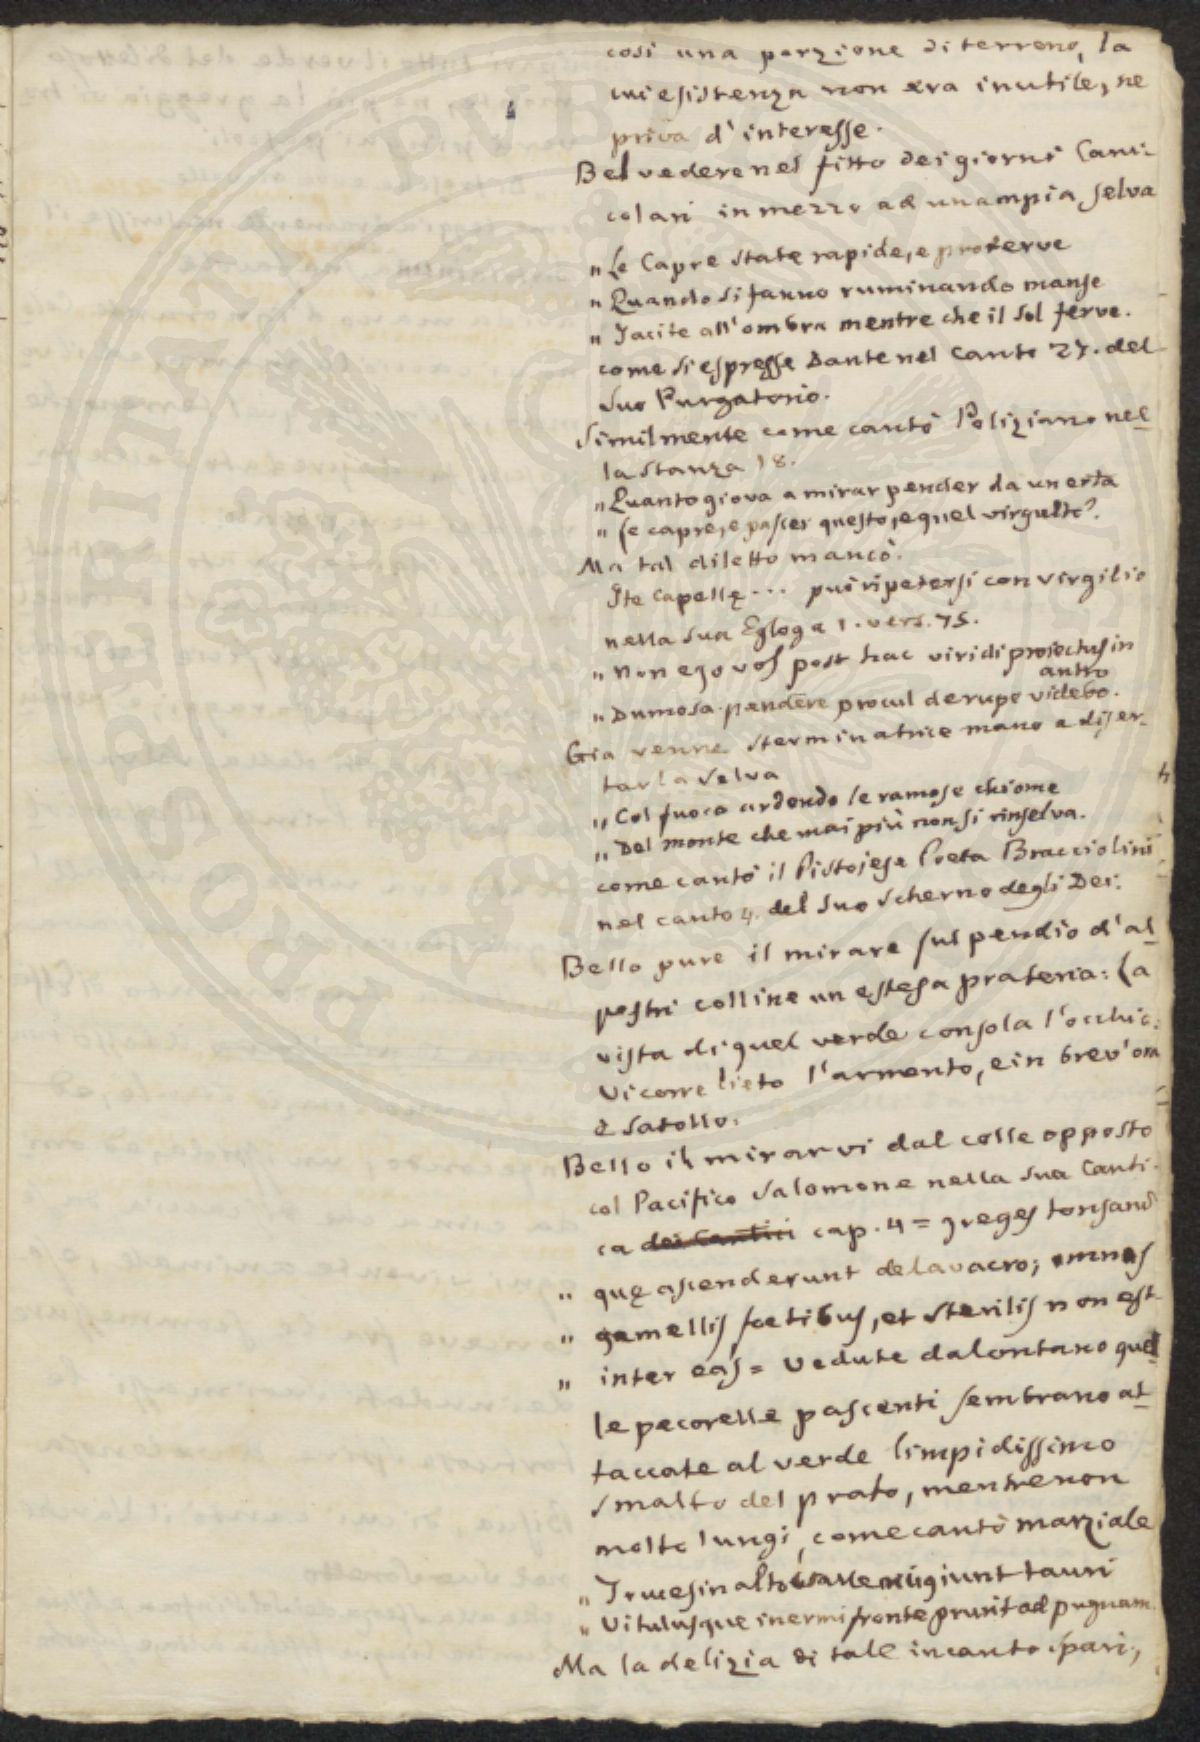 così una porzione di terreno, la
cui esistenza non era inutile, ne
priva d'interesse.
Bel vedere nel fitto dei giorni Cani-
colari in mezzo ad un ampia selva
" Le Capre state rapide, e proterve
" Quando si fanno ruminando manse
" Tacite all'ombra mentre che il sol ferve.
come si espresse Dante nel Canto 27. del
suo Purgatorio.
Similmente come cantò Poliziano nel-
la stanza 18.
" Quanto giova a mirar pender da un erta
" Le capre, e pascer questo, e quel virgulto?
Ma tal diletto mancò.
Ite Capellę ... può ripetersi con Virgilio
nella sua Egloga 1. vers. 75.
" Non ego vos post hac viridi proiectus in
antro
" Dumosa pendere procul de rupe videbo.
Gia venne sterminatrice mano a diser-
tar la selva
" Col fuoco ardendo le ramose chiome
" Del monte che mai più non si rinselva.
come cantò il Pistojese Poeta Bracciolini
nel canto 4. del suo scherno degli Dei.
Bello pure il mirare sul pendio d'al-
pestri colline un estesa prateria: la
vista di quel verde consola l'occhio:
Vi corre lieto l'armento, e in brev'ora
è satollo.
Bello il mirarvi dal colle opposto
col Pacifico Salomone nella sua Canti-
ca dei Cantici cap. 4 = greges tonsarũ
" quę ascenderunt de lavacro; omnes
" gemellis foetibus, et sterilis non est
" inter eas = Vedute da lontano quel-
le pecorelle pascenti sembrano at-
taccate al verde limpidissimo
smalto del prato, mentre non
molto lungi, come cantò Marziale
" Truces in alto valle mugiunt tauri
" Vitulusque inermi fronte prurit ad pugnam.
Ma la delizia di tale incanto sparì,